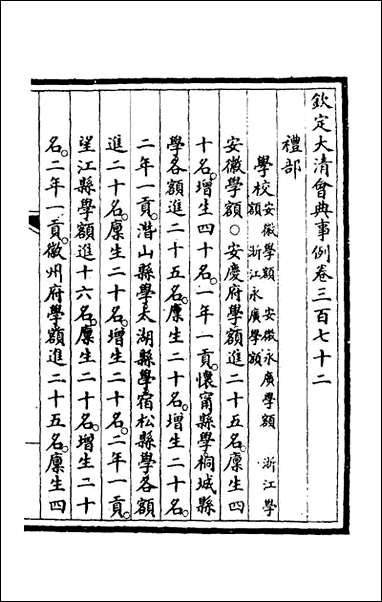 欽定大清會典事例卷三百七十二
禮部
學校安徽學額 安徽永廣學額 浙江學額 浙江永廣學額
安徽學額○安慶府學額進二十五名。廩生四
十名。增生四十名。一年一貢。懷甯縣學桐城縣
學各額進二十五名。廩生二十名。增生二十名。
二年一貢。潛山縣學太湖縣學宿松縣學各額
進二十名。廩生二十名。增生二十名。二年一貢。
望江縣學額進十六名。廩生二十名。增生二十
名。二年一貢。徽州府學額進二十五名。廩生四